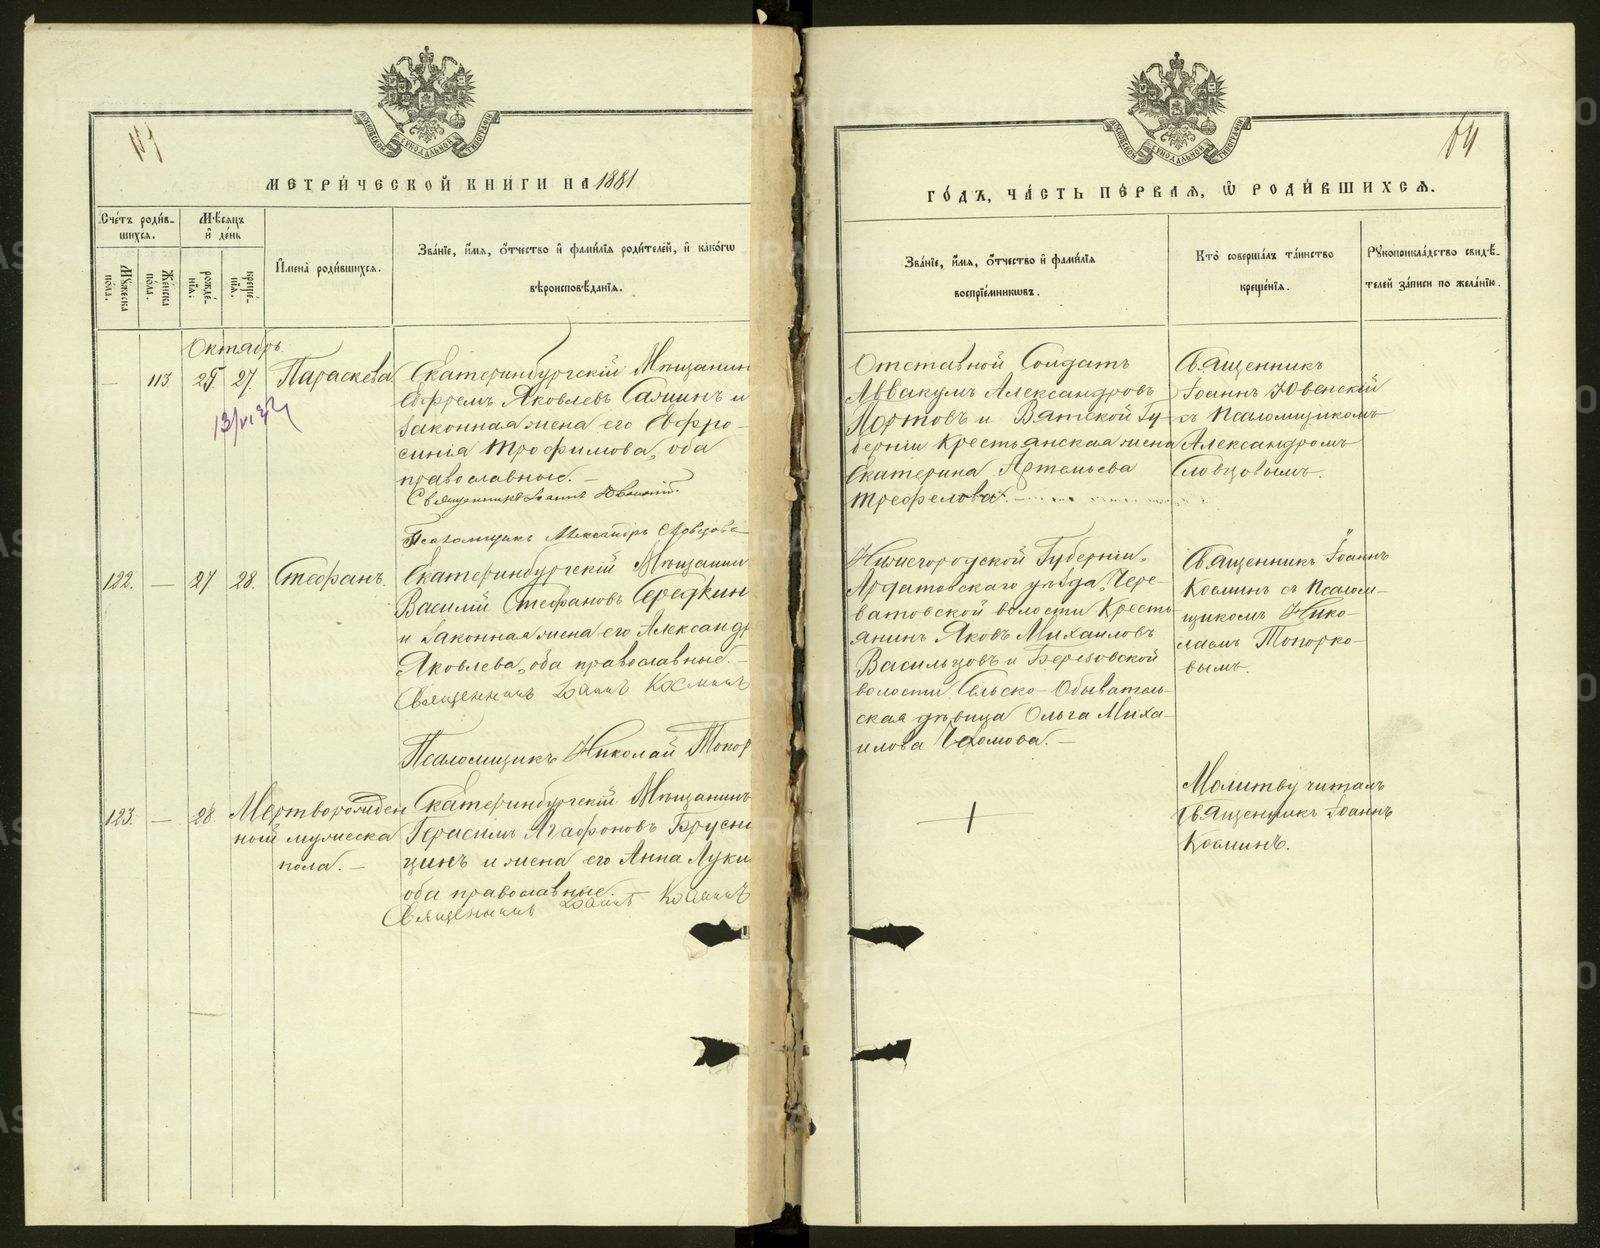 МЕТРИЧЕСКОЙ КНИГИ НА 1881
Счетъ родив-
шихся.
Мѣсяцъ
и день
Мужеска
пола.
Женска
пола.
рожде-
нія.
креще-
нія.
Имена родившихся.
Званіе, имя, отчество и фамилія родителей, и какогѡ
вѣроисповѣданія.
Октябрь
— 113 25 27. Параскева
Екатеринбургскій Мѣщанин
Ефремъ Яковлевъ Салнинъ и
законная жена его Евфро-
синія Трофимова, оба
православные. —
Священникъ Іоаннъ Ювенскій.
Псаломщикъ Александръ Словцовъ
122. — 27 28. Стефанъ.
Екатеринбургскій Мѣщанин
Василій Стефановъ Середкин
и законная жена его Александр
Яковлева, оба православные. —
Священникъ Іоаннъ Косминъ
Псаломщикъ Николай Топор
123. — 28. Мертворожден
ный мужеска
пола. —
Екатеринбургскій Мѣщанинъ
Герасимъ Агафоновъ Брусни
цинъ и жена его Анна Луки
оба православные. —
Священникъ Іоаннъ Косминъ
64
ГОДЪ, ЧАСТЬ ПЕРВАЯ, Ѿ РОДИВШИХСЯ.
Званіе, имя, отчество и фамилія
воспріемниковъ.
Кто совершалъ таинство
крещенія.
Рукоприкладство свидѣ-
телей записи по желанію.
Отставной Солдатъ
Аввакумъ Александровъ
Портовъ и Вятской Гу-
берніи Крестьянская жена
Екатерина Артемьева
Трефелова. —
Священникъ
Іоаннъ Ювенскій
съ Псаломщикомъ
Александромъ
Словцовымъ.
Нижегородской Губерніи
Ардатовскаго уѣзда, Чере-
ватовской волости Кресть-
янинъ Яковъ Михаиловъ
Васильцовъ и Березовской
волости Сельско-Обыватель-
ская дѣвица Ольга Миха-
илова Чахомова. —
Священникъ Іоаннъ
Косминъ съ Псалом-
щикомъ Нико-
лаемъ Топорко-
вымъ.
Молитву читалъ
Священникъ Іоаннъ
Косминъ.
METRIKI.GASO-URAL.RU